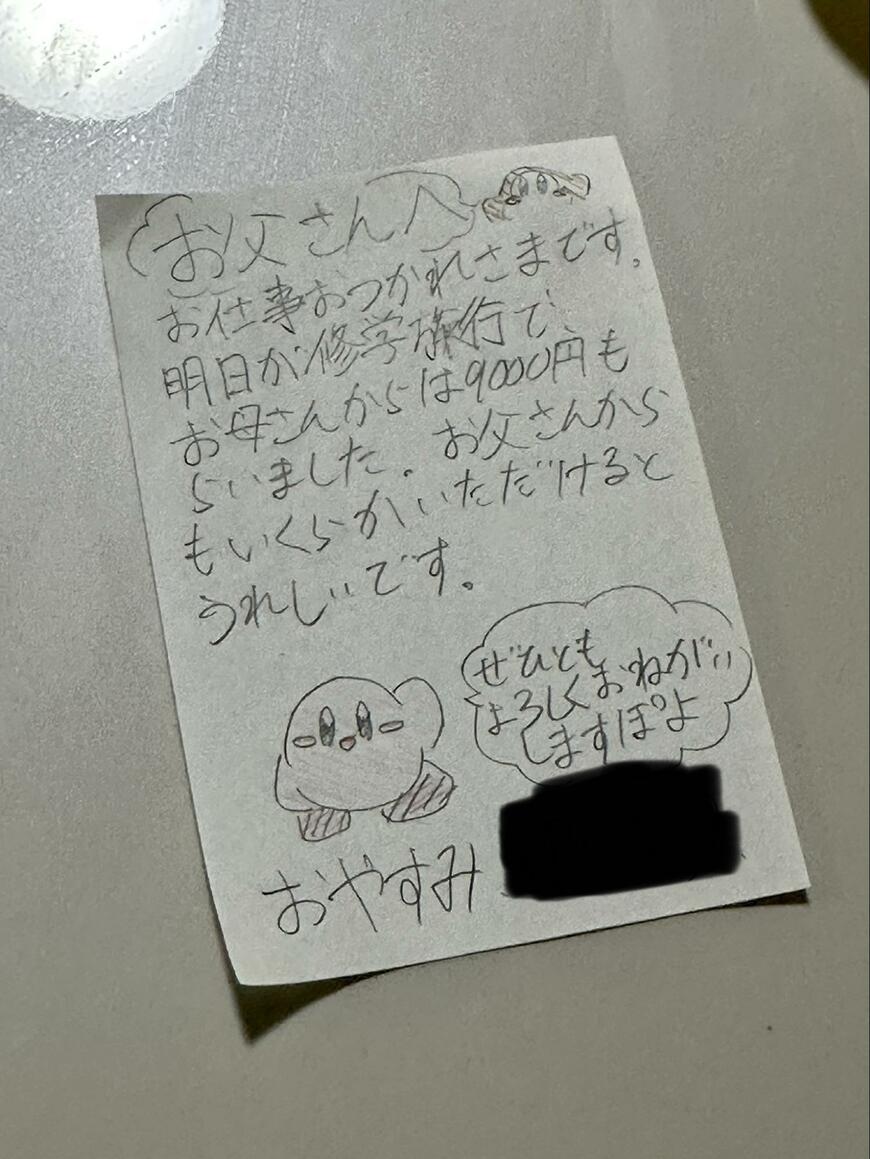 お父さんへ
お仕事おつかれさまです。
明日が修学旅行で
お母さんからは9000円も
らいました。お父さんから
もいくらかいただけると
うれしいです。
ぜひとも
よろしくおねがい
しますぽよ
おやすみ